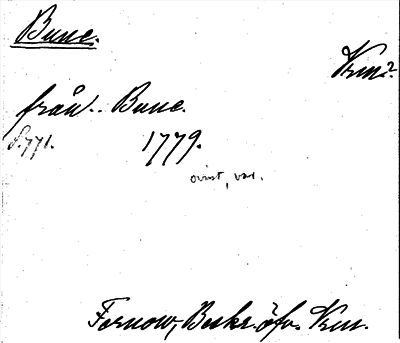 Bune.
Vrml.
från.. Bune.
S. 771. 1779.
ovisst, var.
Fernow, Beskr. öfv. Vrml.